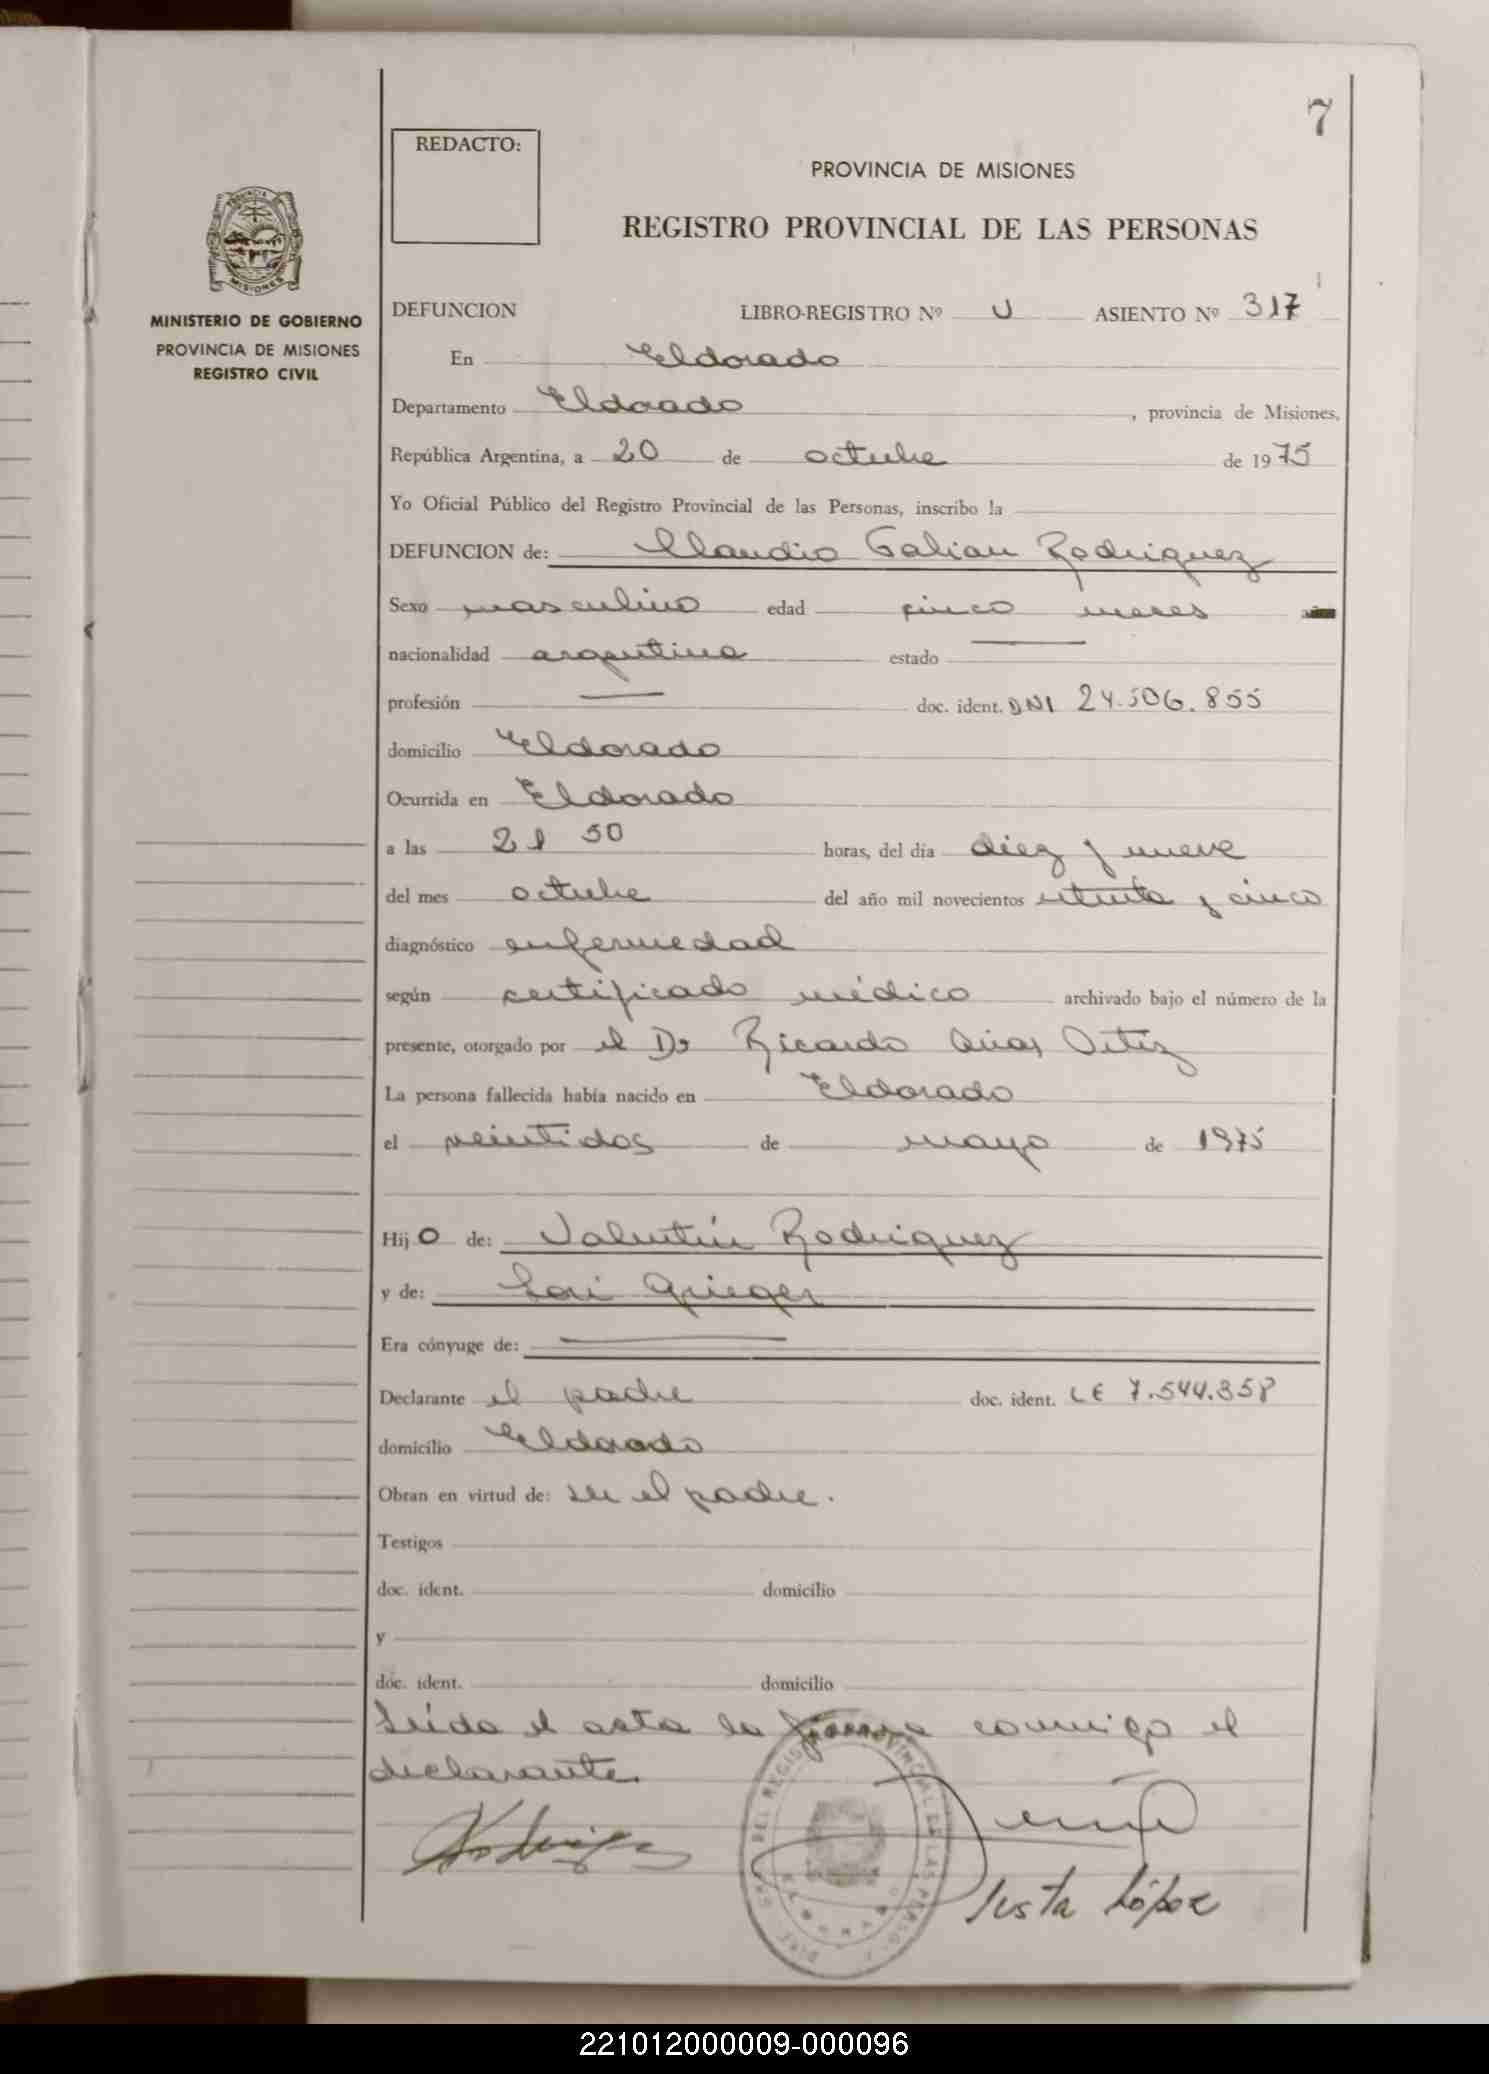 7
REDACTO:
PROVINCIA DE MISIONES
REGISTRO PROVINCIAL DE LAS PERSONAS
MINISTERIO DE GOBIERNO
PROVINCIA DE MISIONES
REGISTRO CIVIL
DEFUNCION LIBRO-REGISTRO Nº U ASIENTO Nº 317
En Eldorado
Departamento Eldorado, provincia de Misiones,
República Argentina, a 20 de octubre de 1975
Yo Oficial Público del Registro Provincial de las Personas, inscribo la
DEFUNCION de: Claudio Galian Rodriguez
Sexo masculino edad cinco meses
nacionalidad argentina estado
profesión doc. ident. DNI 24.506.855
domicilio Eldorado
Ocurrida en Eldorado
a las 21 50 horas, del día diez y nueve
del mes octubre del año mil novecientos setenta y cinco
diagnóstico enfermedad
según certificado médico archivado bajo el número de la
presente, otorgado por el Dr Ricardo Ortiz
La persona fallecida había nacido en Eldorado
el veintidos de mayo de 1975
Hijo de: Valentín Rodriguez
y de: Grieger
Era cónyuge de:
Declarante el padre doc. ident. LE 7.544.358
domicilio Eldorado
Obran en virtud de: ser el padre.
Testigos
doc. ident. domicilio
y
doc. ident. domicilio
Leida el acta la firma conmigo el
declarante.
Rodriguez
Justa López
221012000009-000096